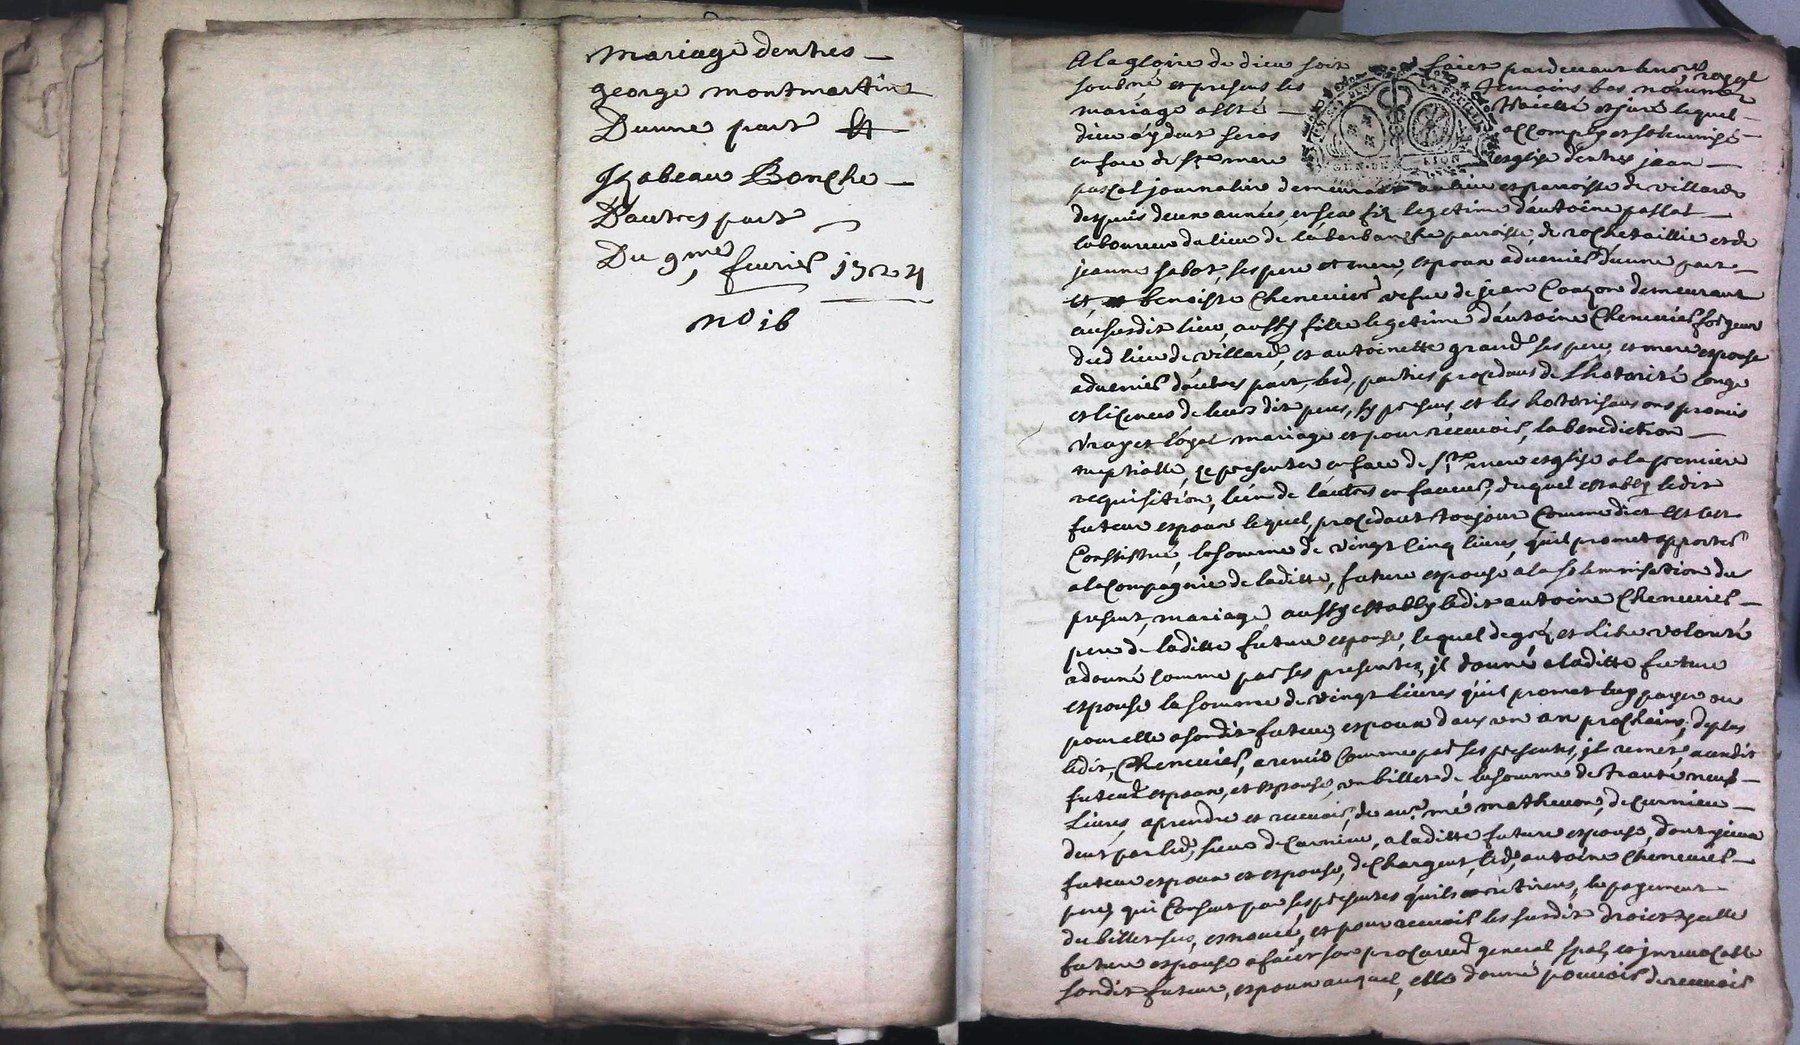 Mariage dentres
george montmartins
Dunne part Et
Izabeau Bonche
D'autres part
Du 9me fevrier 1724
no 16
A la gloire de dieu soit faict pardevant le nore royal
soubné et presens les temoins bas nommez
mariage a esté traicté et juré lequel
dieu aydant seras accomply et solemnisé
en face de ste mere esglise dentres jean
pascal journalier demeurant au lieu et parroisse de villards
despuis deux années en sea fiz legetime d'autoine pascal
laboureur du lieu de parroisse de rochetaillie et de
jeanne sabot, ses pere et mere, espoux advenier d'une part
et benoiste Chenevier vefve de jean Couzon demeurant
au susdit lieu, aussy fille legetime d'autoine Chenevier forgeur
dud lieu de villards, et autoinette grand ses pere et mere espouse
advenier d'autres part, led, parties procedans de Lhotorité Conge
et licences de leurs dit peres, sy presens, et les hotorisans ons promis
vray et loyal mariage et pour recevoir, la benediction
nuptialle, se presenter en face de ste mere esglise a la premiere
requisition, lun de lautres en faveur, duquel estably ledit
futeur espoux lequel, procedant toujour Comme dict est ses
Constitué, la somme de vingt Cinq livres, quil promet apporter
a la Compagnie de laditte, future espouse a la solemnisation du
present, mariage, aussy estably ledit autoine Chenevier
pere de laditte future espouse, lequel de gré et Libe volonté
a donné Comme par ses presentes, jl donne a laditte future
espouse la somme de vingt livres quil promet luy payer ou
pour elle a sondit futeur espoux dans un an prochains, de plus
ledit, Chenevier, a remis Comme par ses presentes, jl remet, au sudit
futeur espoux, et espouse, un billet de la somme de trante neuf
Livres, a prendre et recevoir, de me matheuon, de Curnieu
deut par led, sieur de Curnieu, a laditte future espouse, dont yceux
futeur espoux et espouse, de Chargent, led, autoine Chenevier
pere, qui Consent par ses presentes quils retirent, le payement
du billet sus, enoncé, et pour recevoir les susdit droict ycelle
future espouse a faict son procureur general spal et jrrevocable
sondit futeur, espoux auquel, elle donne pouvoir de recevoir